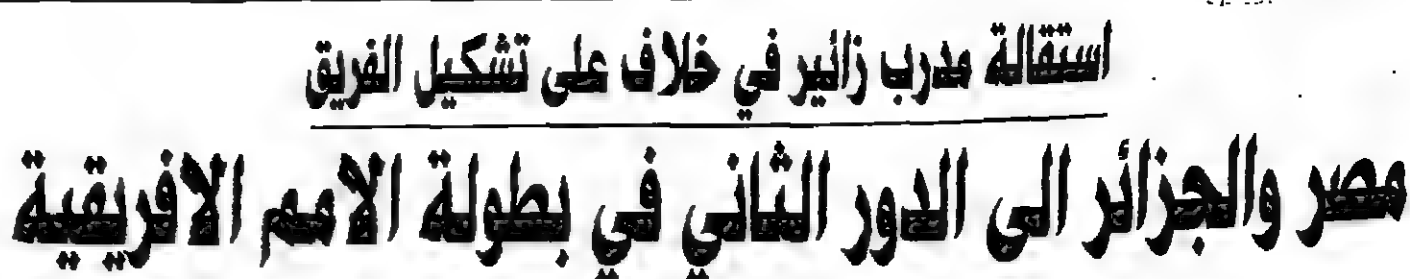 استقالة مدرب زائير في خلاف على تشكيل الفريق
مصر والجزائر الى الدور الثاني في بطولة الامم الافريقية